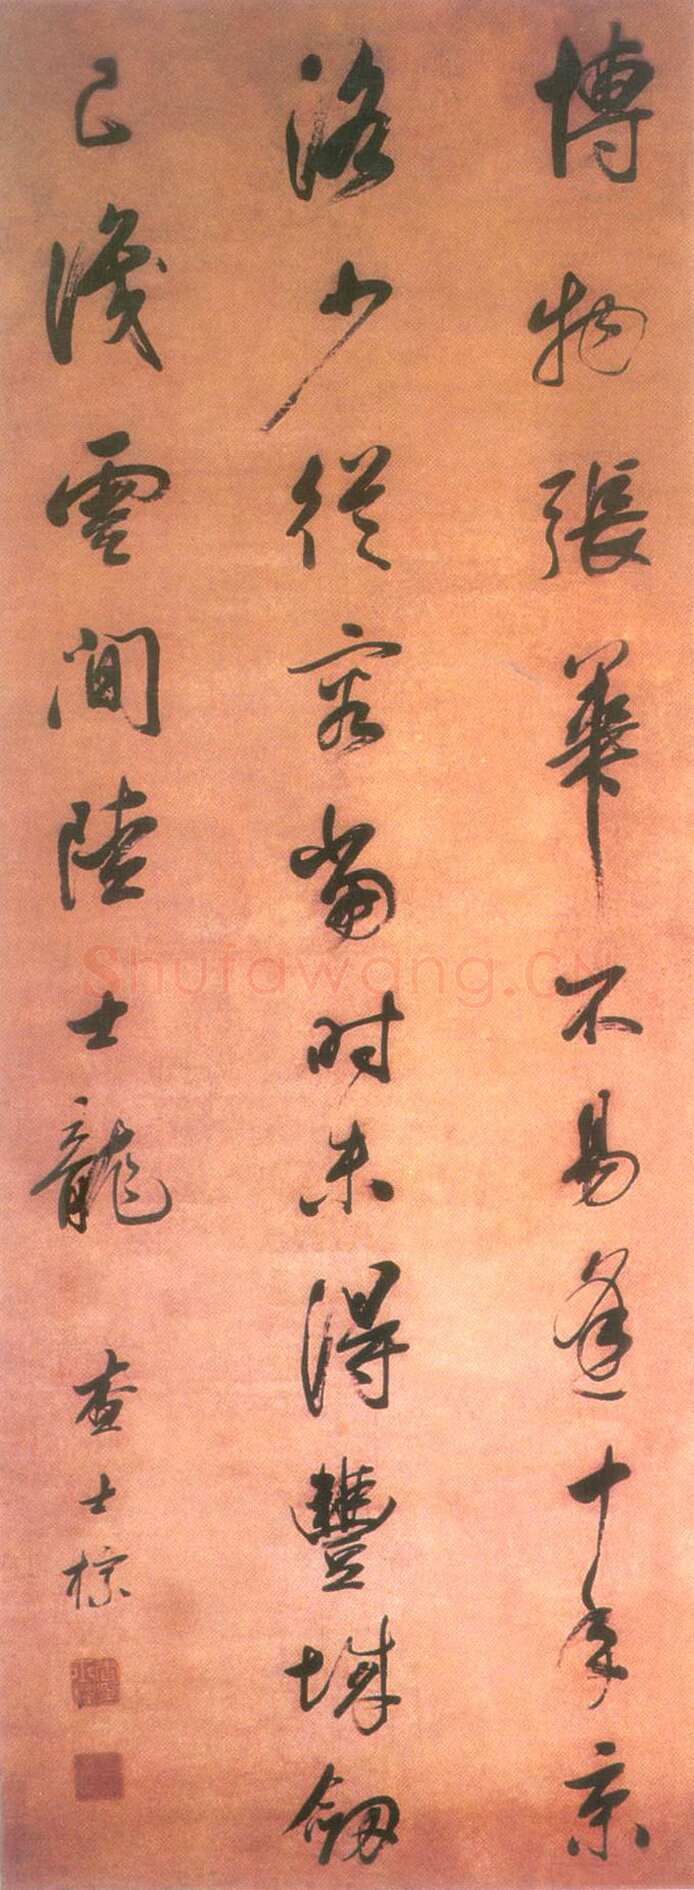 博物張華不易逢十年京
洛少從容當時未得豐城劔
已識雲間陸士龍
查士標
Shufawang.CN